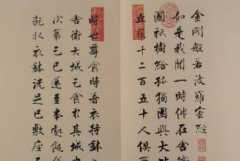 金剛般若波羅蜜經
如是我聞一時佛在舍
國祇樹給孤獨園與大
千二百五十人俱
時世尊食時著衣持鉢
舍衛大城乞食於其城
次第乞已還至本處飯食
收衣鉢洗足已敷座